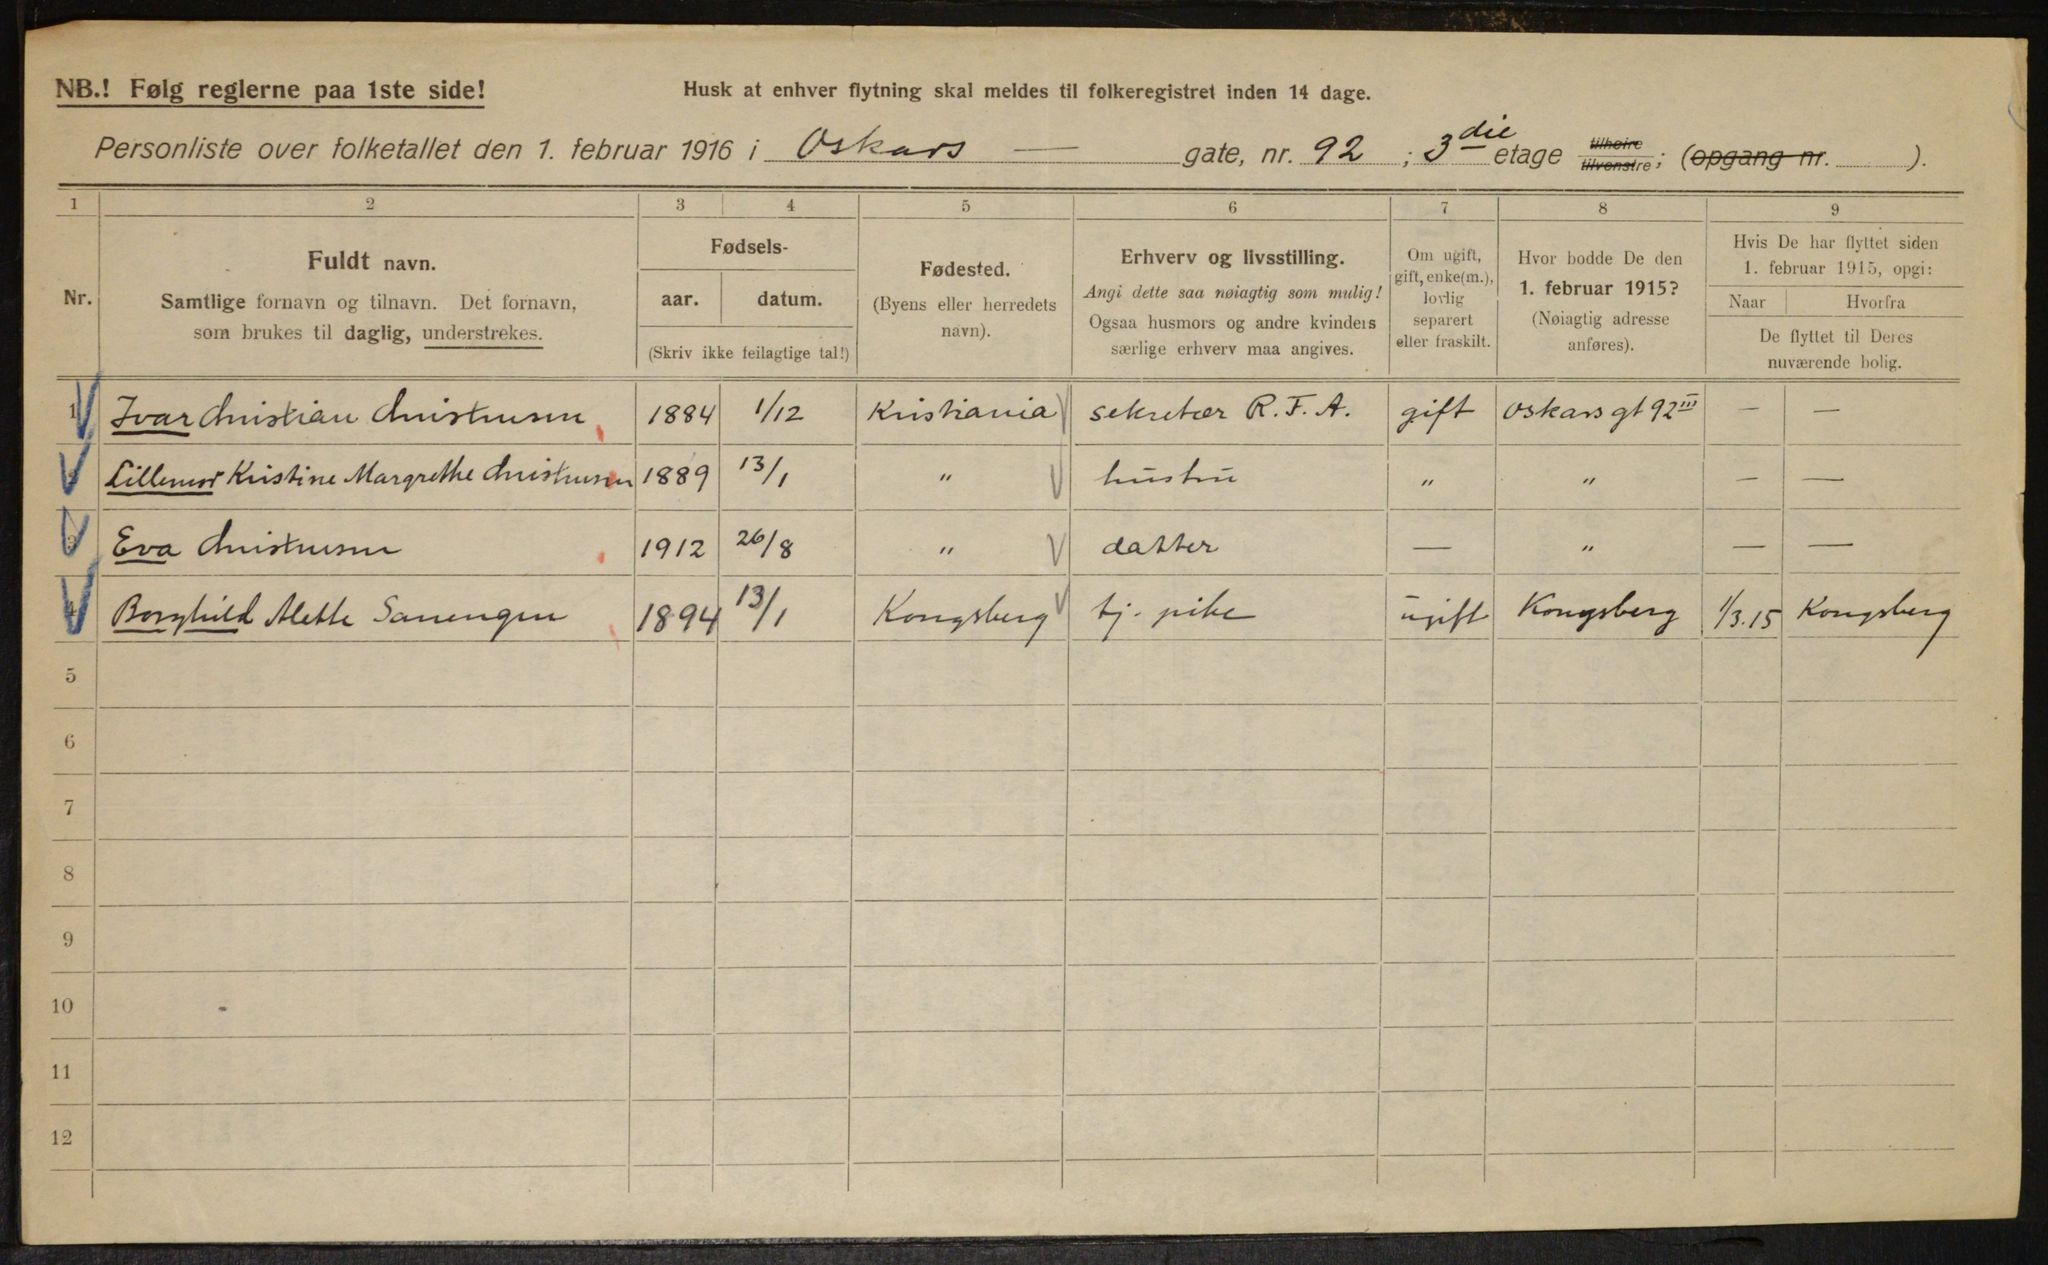 NB.! Følg reglerne paa 1ste side!
Husk at enhver flytning skal meldes til folkeregistret inden 14 dage.
Personliste over folketallet den 1. februar 1916 i Oskars — gate, nr. 92 ; 3die etage tilhøire tilvenstre; (opgang nr. ).
1 2 3 4 5 6 7 8 9
Nr.
Fuldt navn.
Samtlige fornavn og tilnavn. Det fornavn,
som brukes til daglig, understrekes.
Fødsels-
aar. datum.
(Skriv ikke feilagtige tal!)
Fødested.
(Byens eller herredets
navn).
Erhverv og livsstilling.
Angi dette saa nøiagtig som mulig!
Ogsaa husmors og andre kvinders
særlige erhverv maa angives.
Om ugift,
gift, enke(m.),
lovlig
separert
eller fraskilt.
Hvor bodde De den
1. februar 1915?
(Nøiagtig adresse
anføres).
Hvis De har flyttet siden
1. februar 1915, opgi:
Naar Hvorfra
De flyttet til Deres
nuværende bolig.
1 Ivar Christian Christensen 1884 1/12 Kristiania sekretær R. F. A. gift Oskars gt 92 III — —
2 Lillemor Kristine Margrethe Christensen 1889 13/1 " hustru " " — —
3 Eva Christensen 1912 26/8 " datter — " — —
4 Borghild Alette 1894 13/1 Kongsberg tj. pike ugift Kongsberg 1/3.15 Kongsberg
5
6
7
8
9
10
11
12